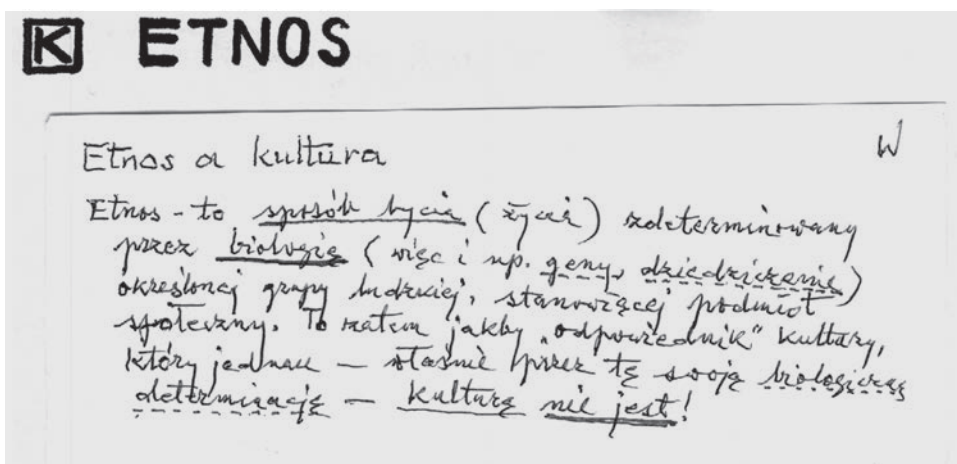 K ETNOS
W
Etnos a kultura
Etnos - to sposób bycia (życia) zdeterminowany
przez biologię (więc i np. geny, dziedziczenie)
określonej grupy ludzkiej, stanowiącej podmiot
społeczny. To zatem jakby „odpowiednik" kultury,
który jednak — właśnie przez tę swoją biologiczną
determinację — kulturą nie jest!